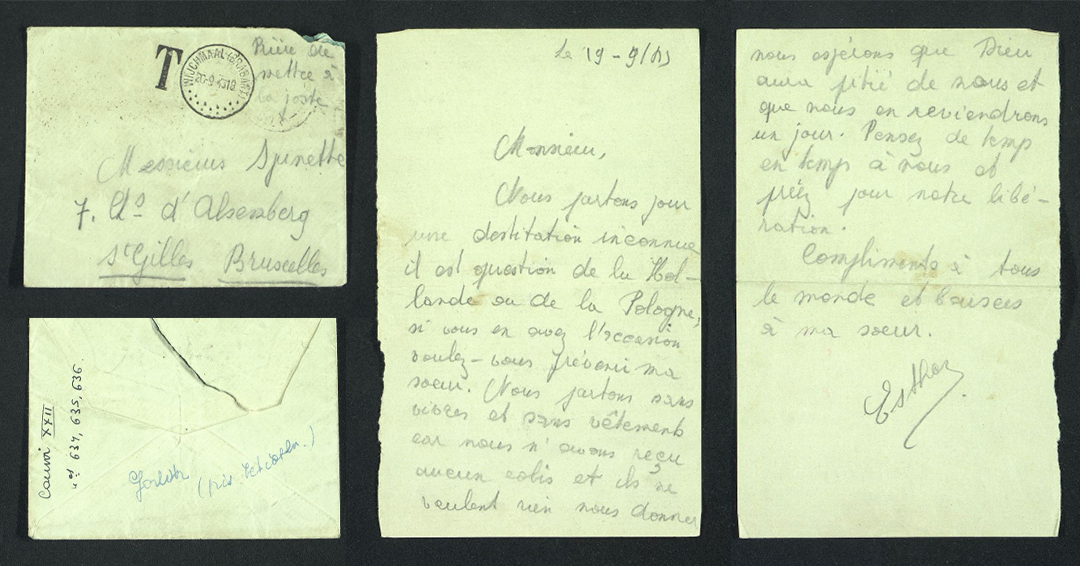 T
WIJCHMAAL (BRABANT)
Prière de
mettre à
la poste
Messieurs Spinette
7. Ch° d'Alsemberg
St Gilles Bruxelles
Convoi XXII
n° 634, 635, 636.
(près
Le 19-9/43
Monsieur,
Nous partons pour
une destitation inconnue
il est question de la Hol-
lande ou de la Pologne,
si vous en avez l'occasion
voulez-vous prévenir ma
soeur. Nous partons sans
vivres et sans vêtements
car nous n'avons reçu
aucun colis et ils ne
veulent rien nous donner
nous espérons que Dieu
aura pitié de nous et
que nous en reviendrons
un jour. Pensez de temp
en temp à nous et
priéz pour notre libé-
ration.
Compliments à tous
le monde et baisees
à ma soeur.
Esther